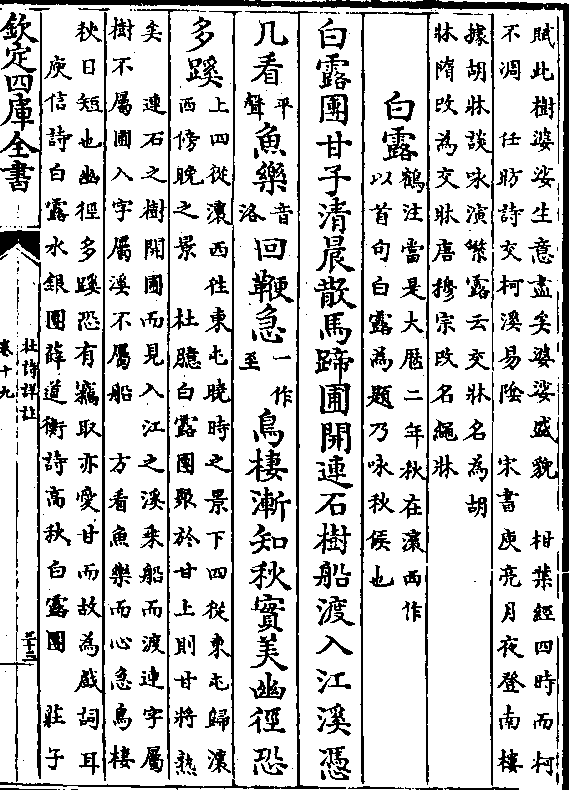 賦此樹婆娑生意盡矣婆娑盛貌　柑葉經四時而柯
不凋　任昉詩交柯溪易陰　宋書庾亮月夜登南樓
據胡牀談咏演繁露云交牀名為胡
牀隋改為交牀唐穆宗改名繩牀
白露鶴注當是大厯二年秋在瀼西作
以首句白露為題乃咏秋候也
白露團甘子清晨散馬蹄圃開連石樹船渡入江溪憑
几看平聲魚樂音洛回鞭急一作至鳥棲漸知秋實美幽徑恐
多蹊上四從瀼西往東屯曉時之景下四從東屯歸瀼
西傍晚之景　杜臆白露團聚於甘上則甘將熟
矣　連石之樹開圃而見入江之溪乗船而渡連字屬
樹不屬圃入字屬溪不屬船　方看魚樂而心急鳥棲
秋日短也幽徑多蹊恐有竊取亦愛甘而故為戯詞耳
庾信詩白露水銀團薛道衡詩高秋白露團　莊子
欽定四庫全書
杜詩詳註
卷十九
三十三